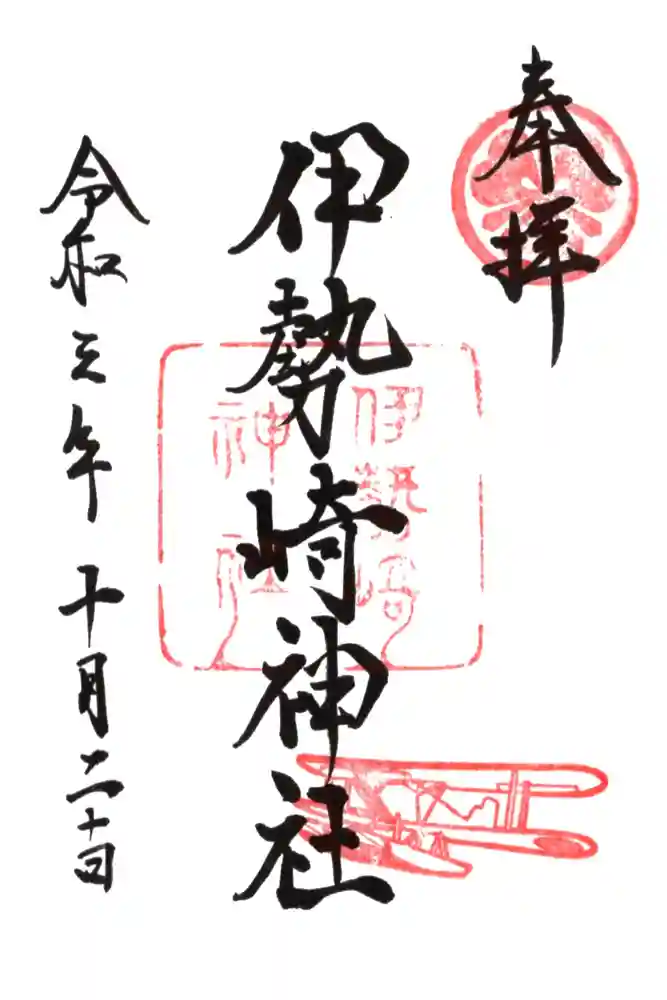 奉拝
伊勢崎神社
伊勢崎
神社
令和三年十月二十日